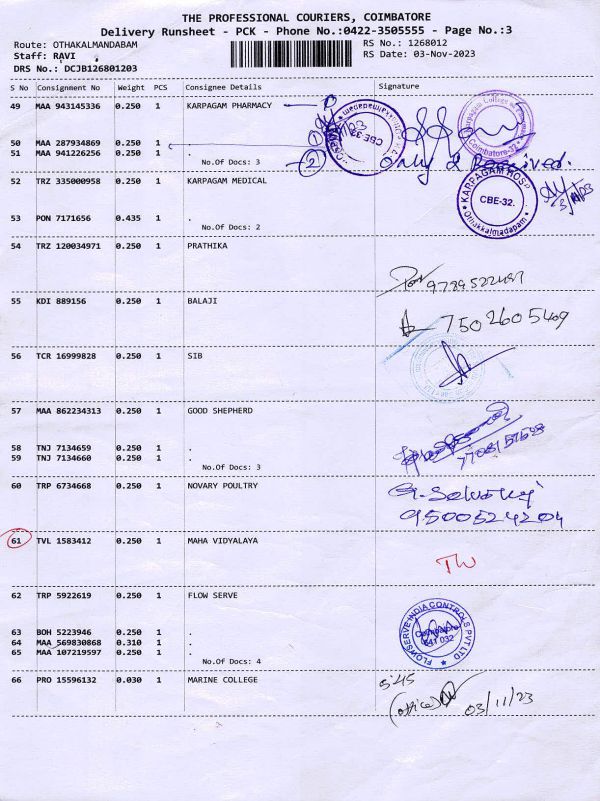 THE PROFESSIONAL COURIERS, COIMBATORE
Delivery Runsheet - PCK - Phone No.:0422-3505555 - Page No.:3
Route: OTHAKALMANDABAM RS No.: 1268012
Staff: RAVI RS Date: 03-Nov-2023
DRS No.: DCJB126801203
S No Consignment No Weight PCS Consignee Details Signature
49 MAA 943145336 0.250 1 KARPAGAM PHARMACY
50 MAA 287934869 0.250 1 .
51 MAA 941226256 0.250 1 .
No.Of Docs: 3
CBE-32
Coimbatore-32
2 only 2 Received.
52 TRZ 335000958 0.250 1 KARPAGAM MEDICAL
KARPAGAM HOSP
CBE-32.
Othakkalmadapam
53 PON 7171656 0.435 1 .
No.Of Docs: 2
54 TRZ 120034971 0.250 1 PRATHIKA
55 KDI 889156 0.250 1 BALAJI
7502605409
56 TCR 16999828 0.250 1 SIB
57 MAA 862234313 0.250 1 GOOD SHEPHERD
58 TNJ 7134659 0.250 1 .
59 TNJ 7134660 0.250 1 .
No.Of Docs: 3
60 TRP 6734668 0.250 1 NOVARY POULTRY
9500524204
61 TVL 1583412 0.250 1 MAHA VIDYALAYA
62 TRP 5922619 0.250 1 FLOW SERVE
FLOWSERVE INDIA CONTROLS PVT LTD
Coimbatore
641 032
63 BOH 5223946 0.250 1 .
64 MAA 569830868 0.310 1 .
65 MAA 107219597 0.250 1 .
No.Of Docs: 4
66 PRO 15596132 0.030 1 MARINE COLLEGE
5:45
(office) 03/11/23